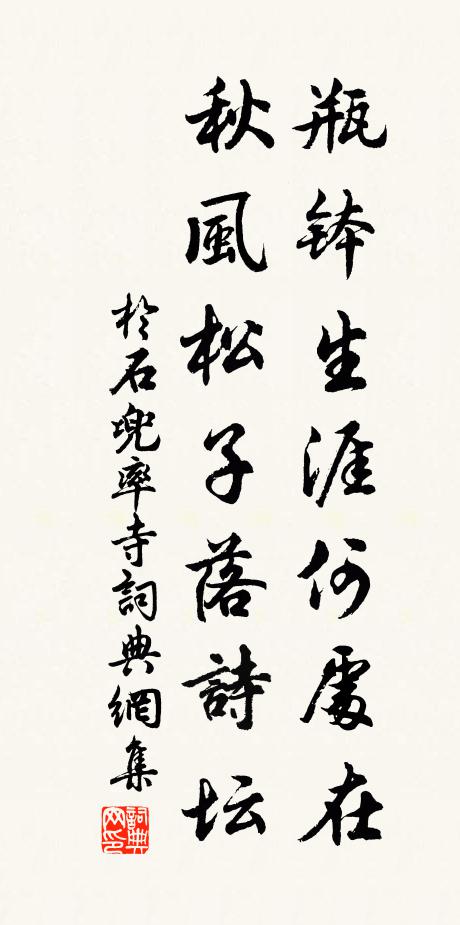 瓶鉢生涯何處在
秋風松子落詩坛
於石兜率寺詞典網集
詞典网印